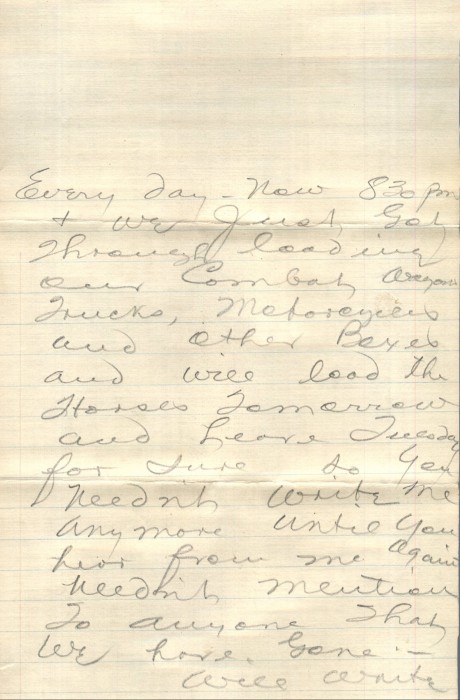 Every day - Now 830 pm
+ we Just Got
through loading
our Combat Wagons
Trucks, Motorcycles
and other Boxes
and will load the
Horses Tomorrow
and Leave Tuesday
for sure so You
Needn't write me
Any more until You
hear from me again
Needn't mention
To anyone that
We have Gone -
Will Write